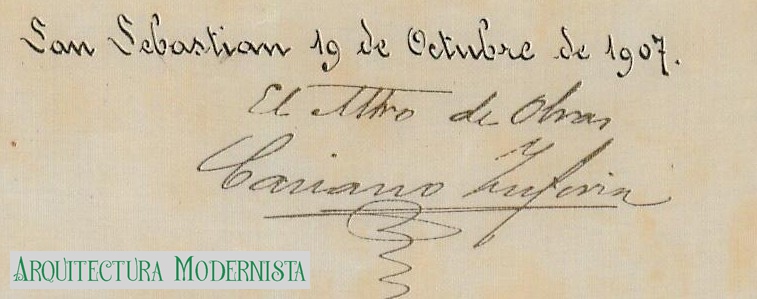 San Sebastian 19 de Octubre de 1907.
El Mtro de Obras
Cariano
ARQUITECTURA MODERNISTA